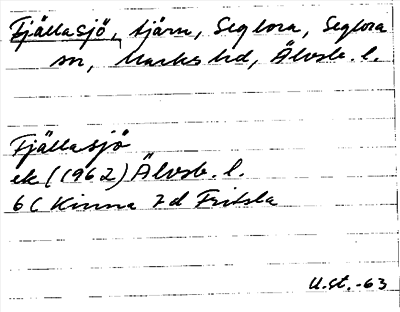 Fjällasjö, tjärn, Seglora, Seglora
sn, Marks hd, Älvsb. l.
Fjällasjö
ek (1962) Älvsb. l.
6C Kinna 7d Fritsla
U.st. -63